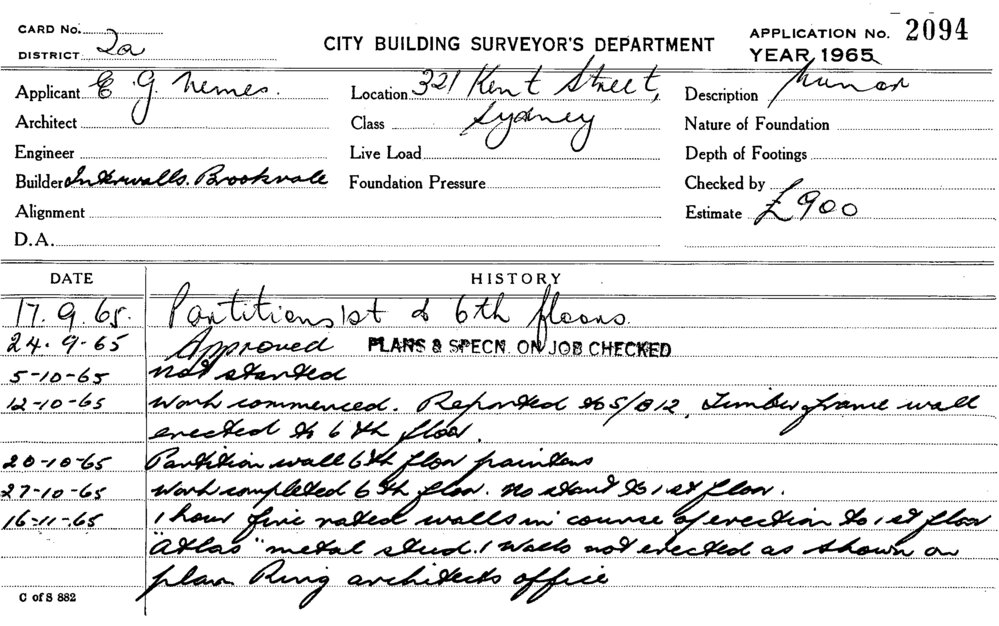 CARD No.
DISTRICT 2a
CITY BUILDING SURVEYOR'S DEPARTMENT
APPLICATION No. 2094
YEAR 1965
Applicant E. G. Nemes.
Location 321 Kent Street,
Description Minor
Architect
Class Sydney
Nature of Foundation
Engineer
Live Load
Depth of Footings
Builder Interwalls. Brookvale
Foundation Pressure
Checked by
Alignment
Estimate £900
D.A.
DATE HISTORY
17. 9. 65. Partitions 1st & 6th floors.
24.-9-65 Approved PLANS & SPECN. ON JOB CHECKED
5-10-65 not started
12-10-65 Work commenced. Reported to S/B 12, Timber frame wall
erected to 6th floor.
20-10-65 Partition wall 6th floor painters
27-10-65 Work completed 6th floor. no start to 1st floor.
16-11-65 1 hour fire rated walls in course of erection to 1st floor
"Atlas" metal stud. Walls not erected as shown on
plan Ring architects office
C of S 882